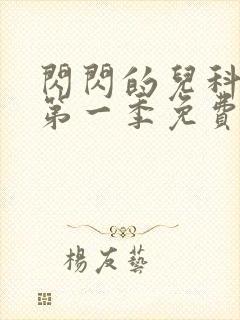 閃閃的兒科
第一季免費
楊友藝